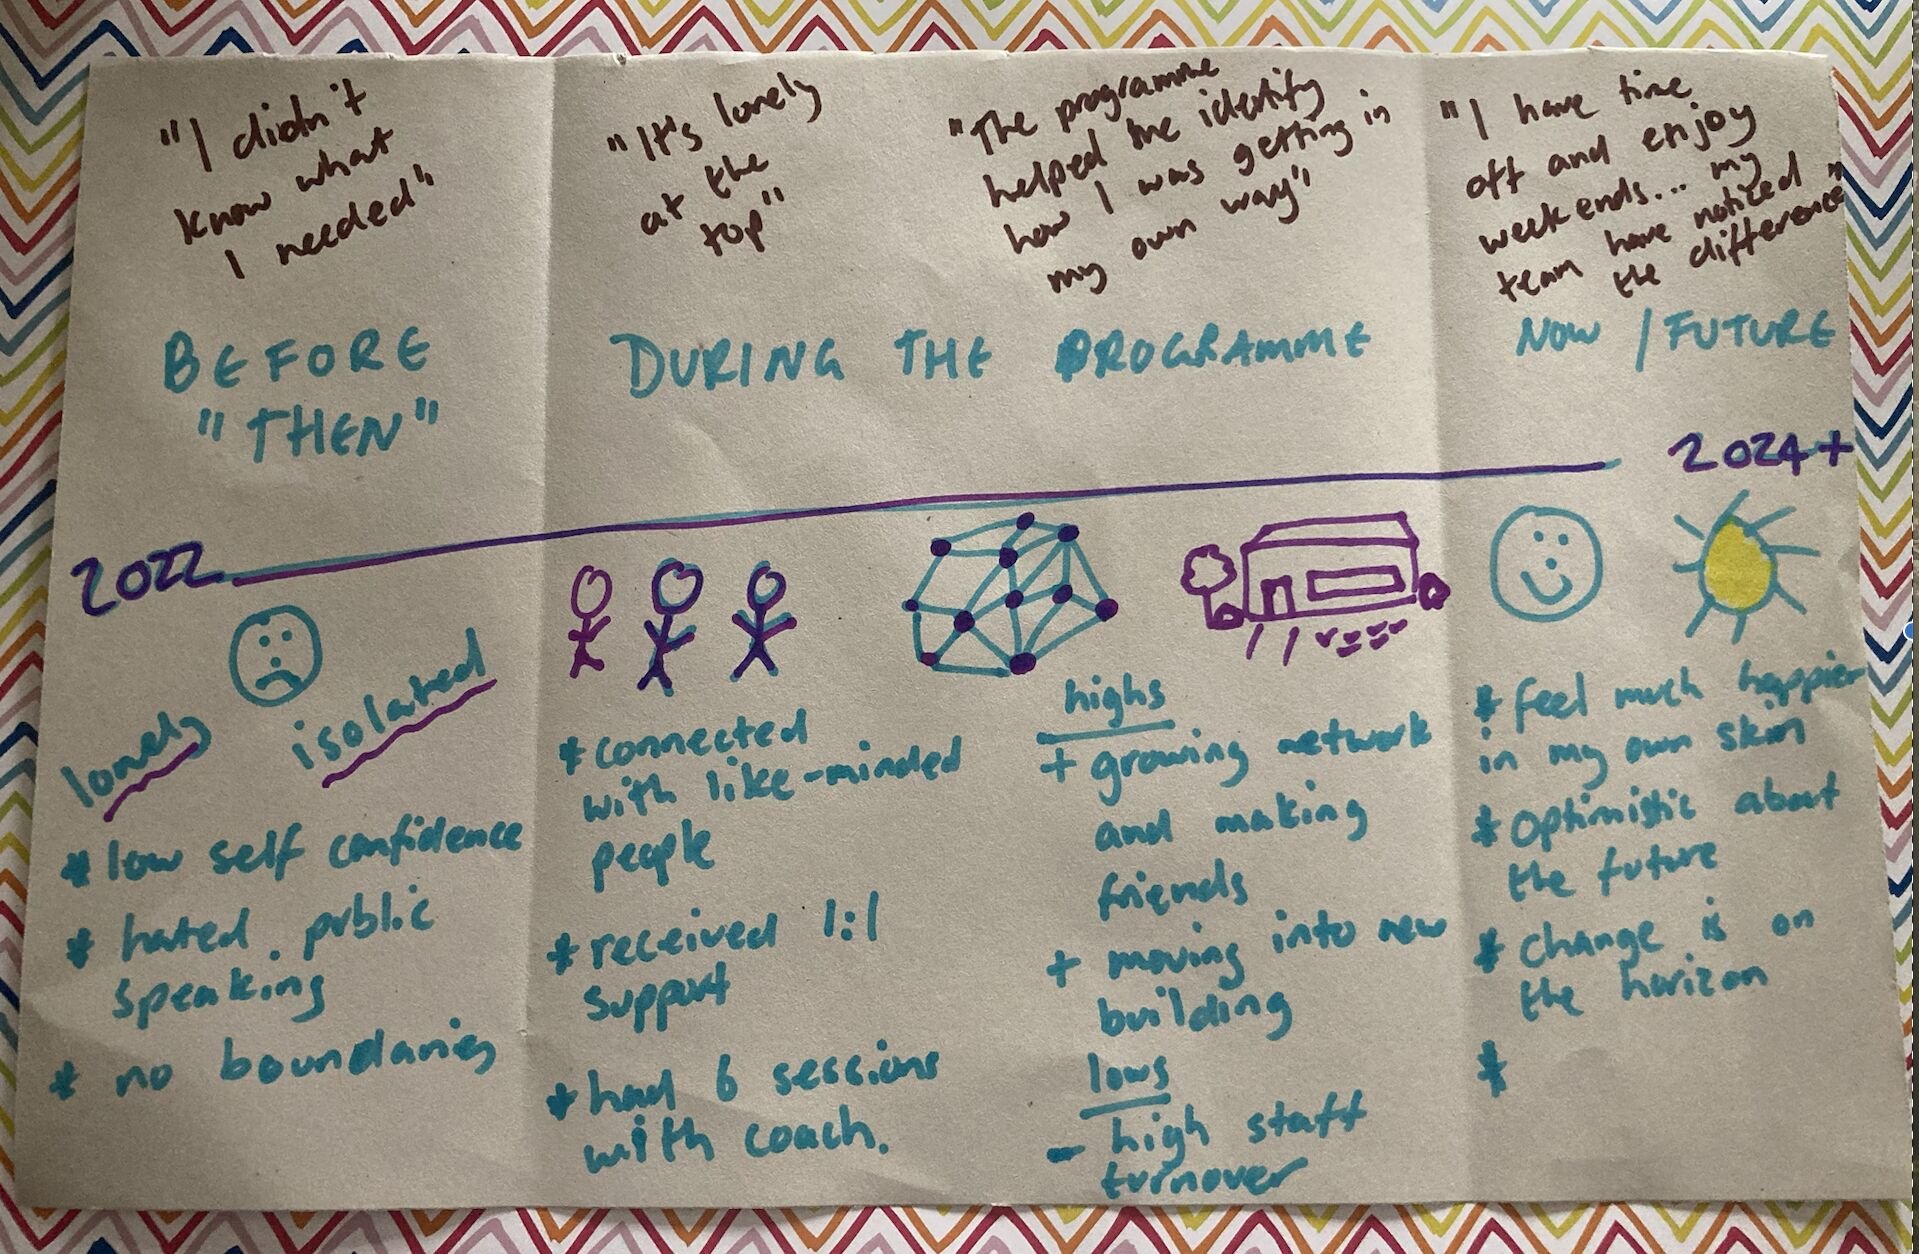 "I didn't
know what
I needed"
"It's lonely
at the
top"
"The programme
helped me identify
how I was getting in
my own way"
"I have time
off and enjoy
weekends... my
team have noticed
the difference"
BEFORE
"THEN"
DURING THE PROGRAMME
NOW / FUTURE
2022
2024+
lonely
isolated
* low self confidence
* hated public
speaking
* no boundaries
* connected
with like-minded
people
* received 1:1
support
* had 6 sessions
with coach.
highs
+ growing network
and making
friends
+ moving into new
building
lows
- high staff
turnover
* feel much happier
in my own skin
* optimistic about
the future
* change is on
the horizon
*